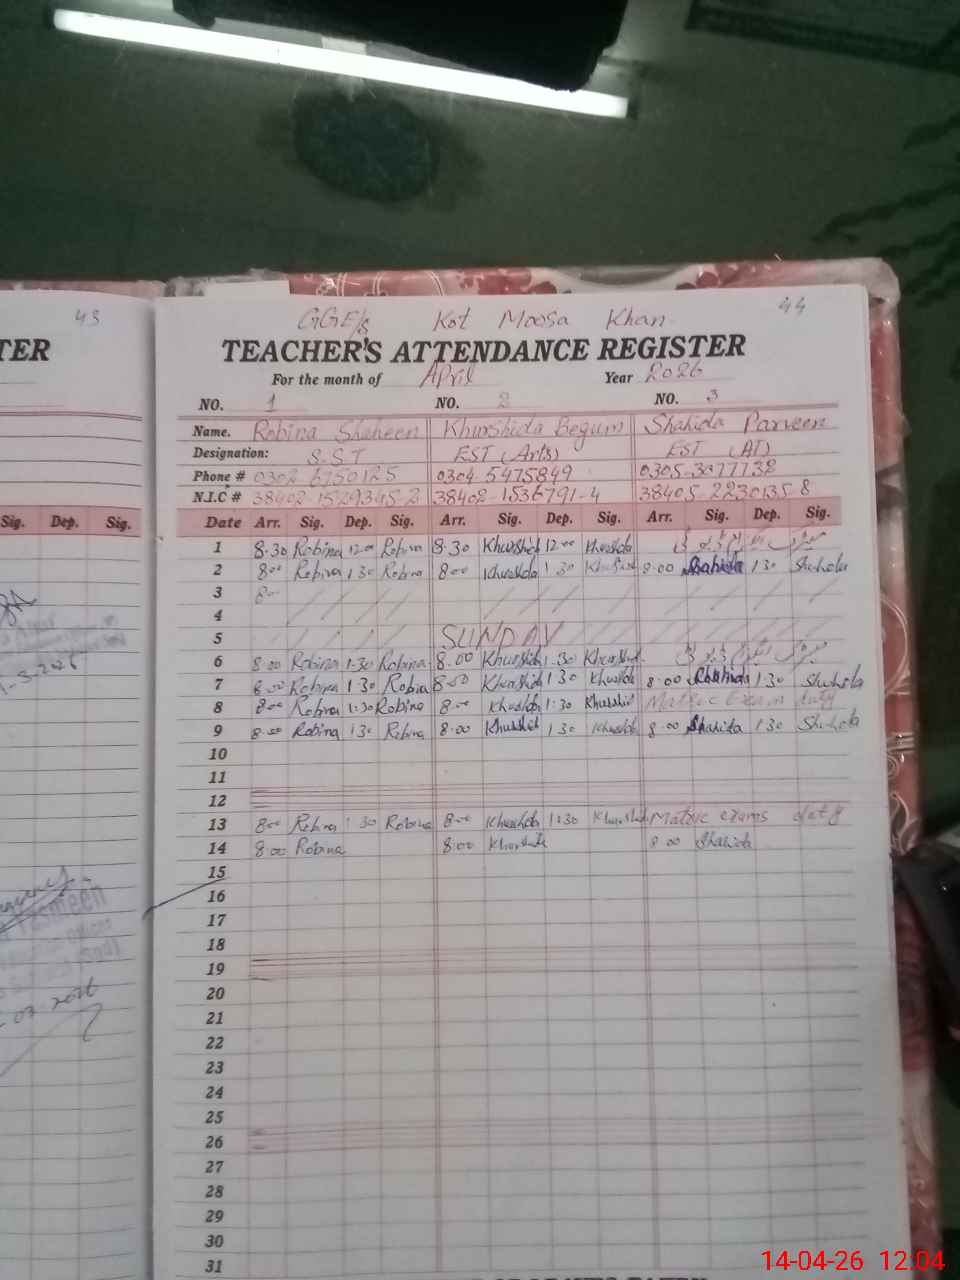 43
TER
Sig. Dep. Sig.
44
GGE/S Kot Moosa Khan
TEACHER'S ATTENDANCE REGISTER
For the month of April Year 2026
NO. 1 NO. 2 NO. 3
Name. Robina Shaheen Khurshida Begum Shahida Parveen
Designation: S.S.T EST (Arts) EST (AT)
Phone # 0302 6750125 0304 5475849 0305-3077738
N.I.C # 38402-1529345-2 38402-1536791-4 38405-2230135-8
Date Arr. Sig. Dep. Sig. Arr. Sig. Dep. Sig. Arr. Sig. Dep. Sig.
1 8.30 Robina 12.00 Robina 8.30 Khurshida 12.00 Khurshida
2 8.00 Robina 1 30 Robina 8.00 Khurshida 1 30 Khurshida 8.00 Shahida 1 30 Shahida
3 8.00
4
5 SUNDAY
6 8.00 Robina 1.30 Robina 8.00 Khurshida 1.30 Khurshida
7 8.00 Robina 1 30 Robina 8.00 Khurshida 1 30 Khurshida 8.00 Shahida 1 30 Shahida
8 8.00 Robina 1:30 Robina 8.00 Khurshida 1:30 Khurshid Matric Exam duty
9 8.00 Robina 1 30 Robina 8.00 Khurshid 1 30 Khurshida 8.00 Shahida 1 30 Shahida
10
11
12
13 8.00 Robina 1 30 Robina 8.00 Khurshida 1:30 Khurshid Matric exams duty
14 8.00 Robina 8.00 Khurshida 8 00 Shahida
15
16
17
18
19
20
21
22
23
24
25
26
27
28
29
30
31
14-04-26 12:04